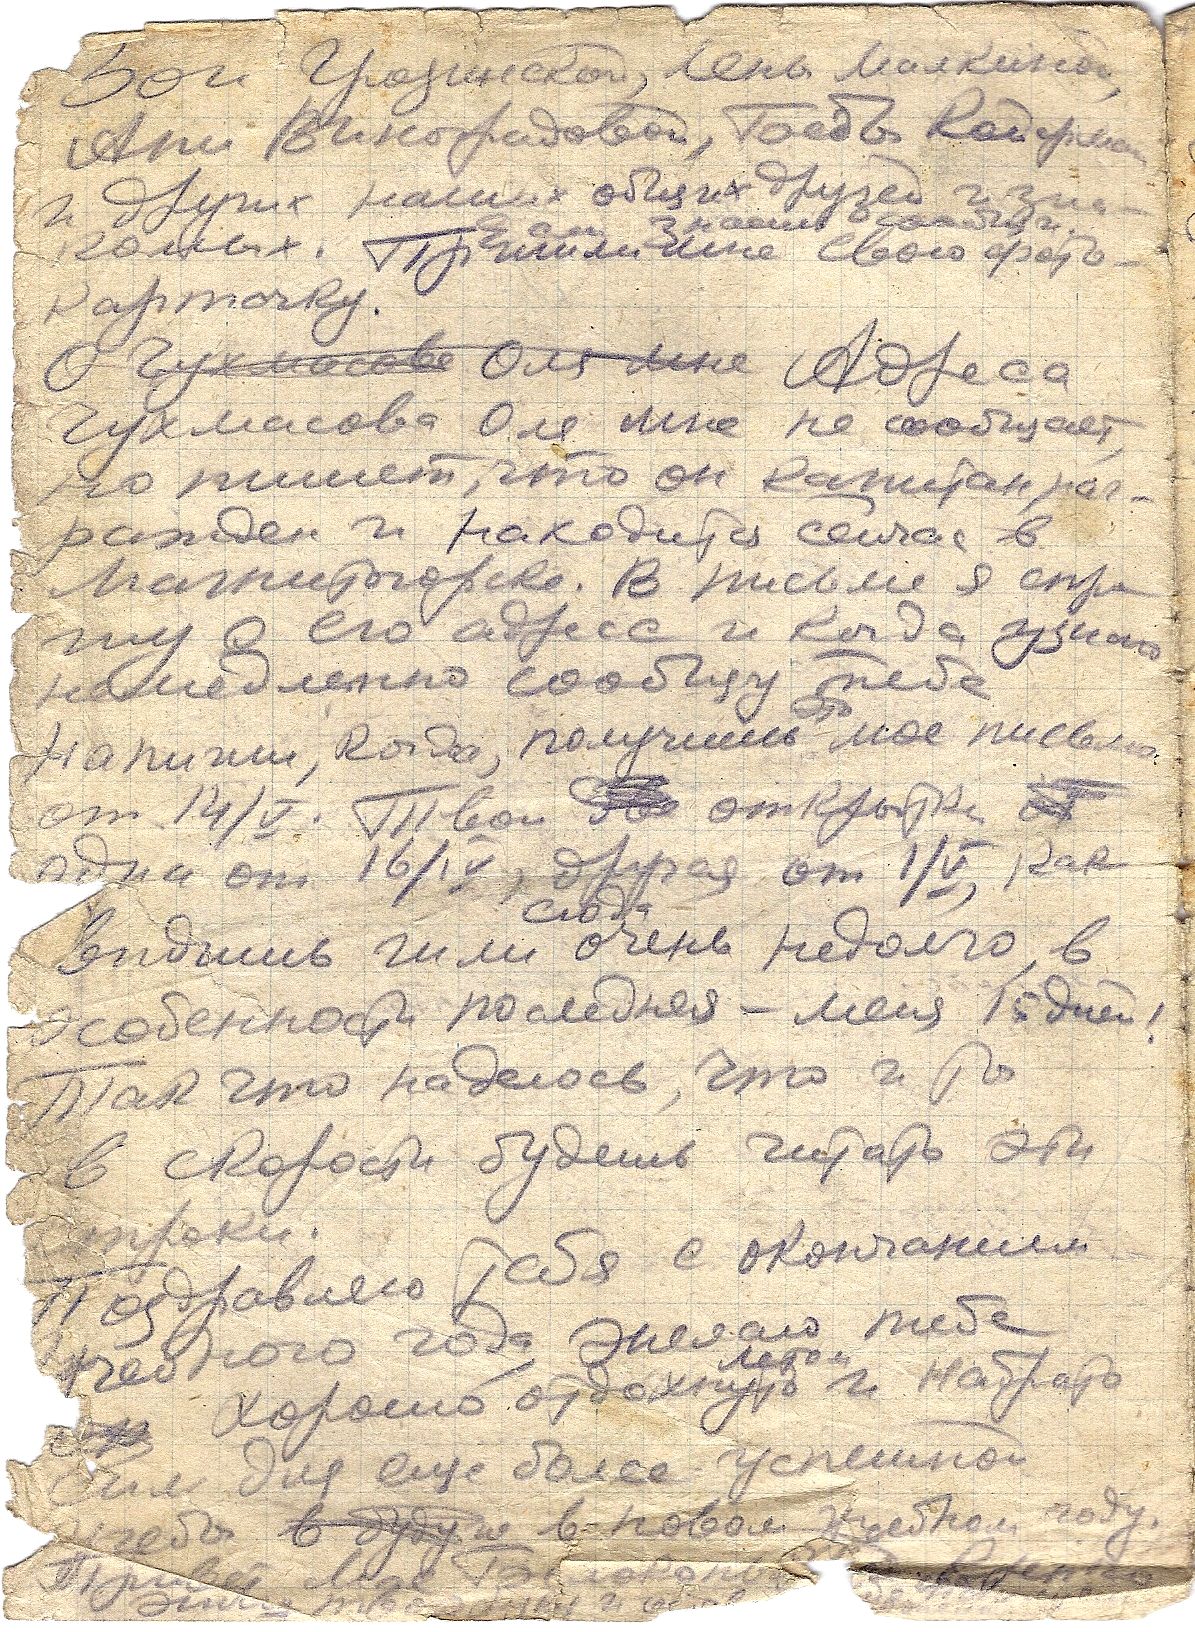 Бои Гродинской, Лены Малкиной,
Ани Виноградовой, Таебы Койфман
и других наших общих друзей и зна-
Если знаешь сообщи.
комых. Пришли мне свою фото-
карточку.
О Чухмасове Оля мне Адреса
Чухмасова Оля мне не сообщает,
но пишет, что он капитан, наг-
ражден и находится сейчас в
Магнитогорске. В письме я спра
шу о его адресе и когда узнаю
немедленно сообщу тебе
Напиши, когда, получишь это мое письмо
от 14/V. Твои открытки от
одна от 16/IV, другая от 1/V, как
сюда
видишь шли очень недолго, в
особенности последняя – меня 15 дней!
Так что надеюсь, что и ты
в скорости будешь читать эти
строки.
Поздравляю тебя с окончанием
учебного года, желаю тебе
летом
хорошо отдохнуть и набрать
сил для еще более успешной
учебы в будуще в новом учебном году.
Привет